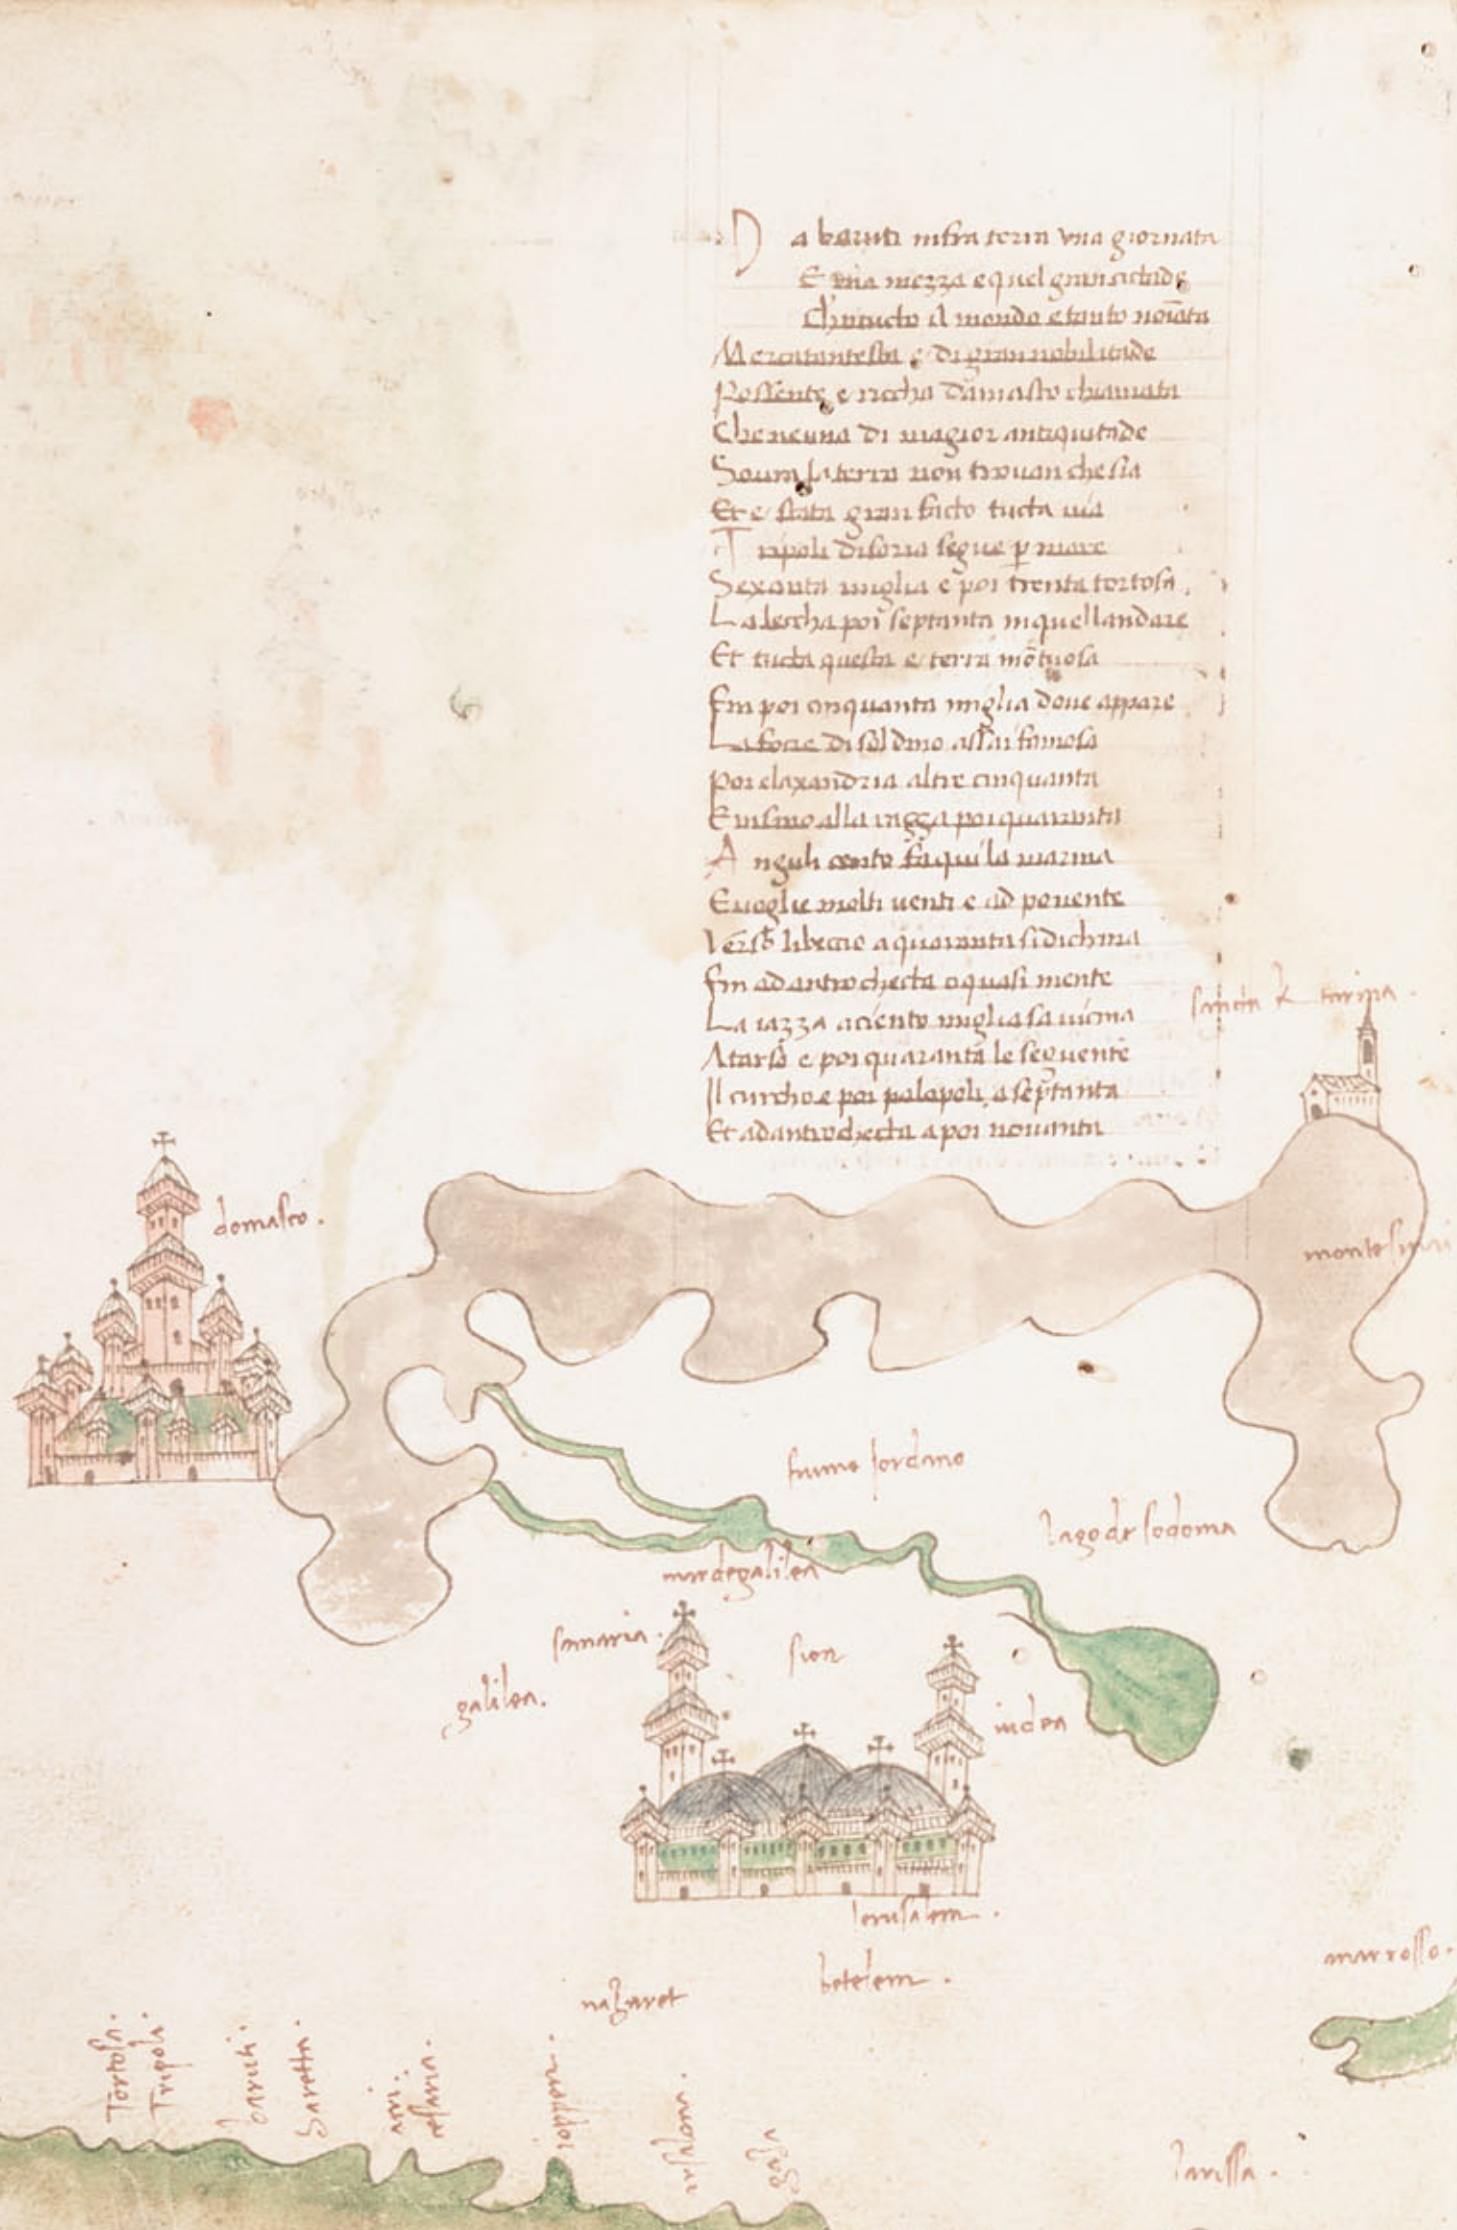 Da baruti infra terra una giornata
E una mezza e quel gran cictade
Ch intucto il mondo e tanto noīata
Mercatantesca e di gran nobilitade
Possente e riccha damasco chiamata
Che neuna di magior antiquitade
Soura la terra non trouan che sia
Et e stata gran facto tucta uia
Tripoli di soria segue p mare
Sexanta miglia e poi trenta tortosa
La leccha poi septanta in quel landare
Et tucta questa e terra mōtuosa
Fin poi cinquanta miglia doue appare
La foce di soldino assai famosa
Poi elaxandria altre cinquanta
E insino alla raggza poi quaranta
Anguli cento fa qui la marina
E uoglie molti uenti e ad ponente
Verso libeccio a quaranta si dichina
Fin ad antiochecta o quasi mente
La iazza a ciento miglia sa uicina
A tarso e poi quaranta le seguente
Il curcho e poi palopoli a septanta
Et ad antiochecta a poi nouanta
sancta K tarina .
domasco .
monte sinai
fiume Jordano
lago de sodoma
mar de galilea
samaria .
sion
galilea .
iudea
Ierusalem .
betelem .
nazaret
mar rosso .
Tortosa .
Tripoli .
baruti .
Saretta .
acri .
cesaria .
ioppen .
gaza
larissa .